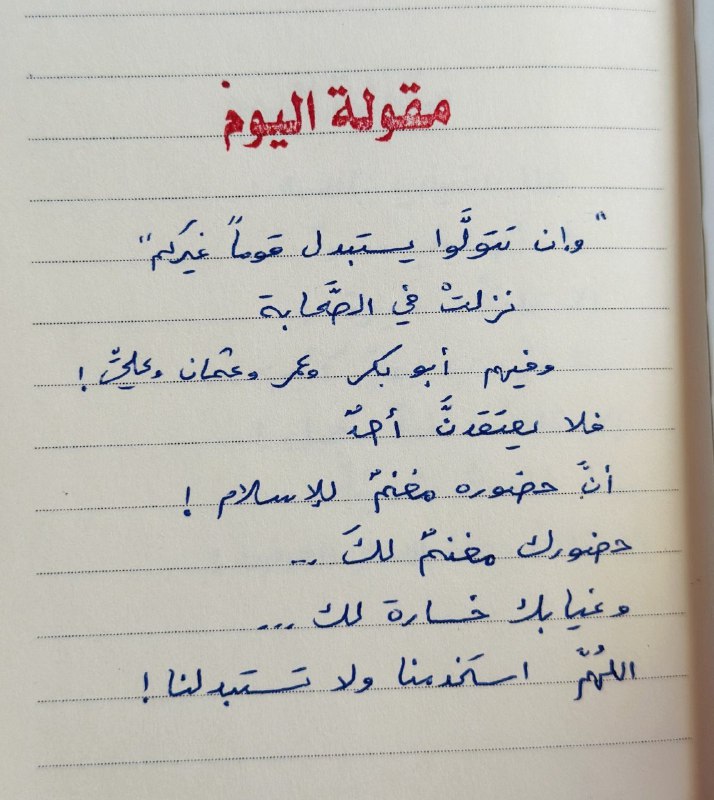 مقولة اليوم
"وإن تتولَّوا يستبدل قوماً غيركم"
نزلتْ في الصَّحابة
وفيهم أبو بكر وعمر وعثمان وعليّ!
فلا يعتقدنَّ أحدٌ
أنَّ حضوره مغنمٌ للإسلام!
حضورك مغنمٌ لكَ ..
وغيابك خسارة لك ...
اللهُمَّ استخدمنا ولا تستبدلنا!